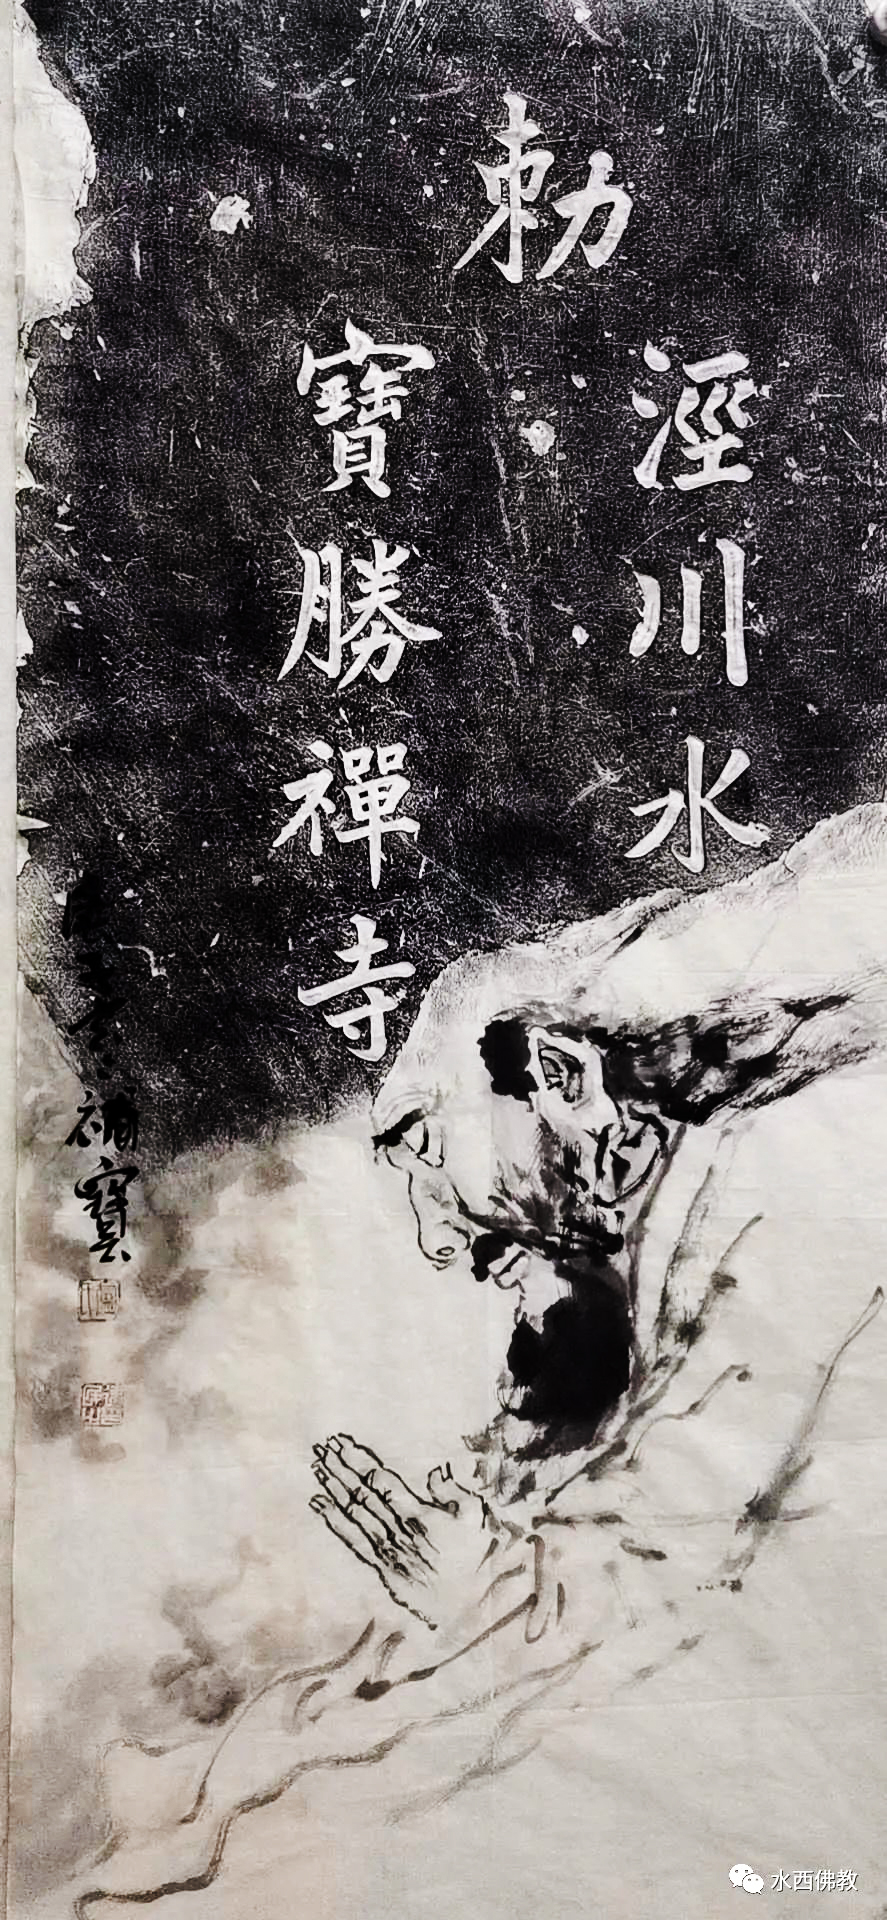 勅
涇川水
寶勝禪寺
補寶
水西佛教